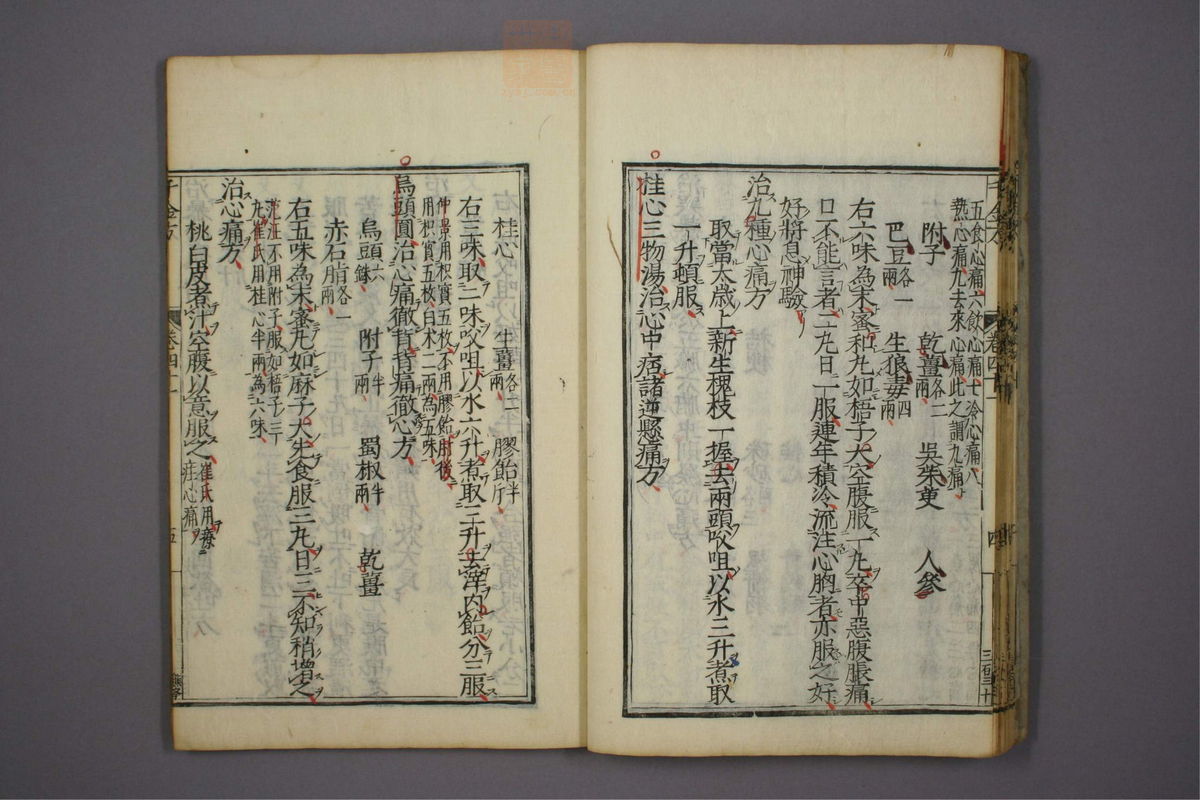 五食心痛六飲心痛七冷心痛八
熱心痛九去來心痛此之謂九痛
附子　乾薑各二兩　吳茱萸　人參
巴豆各一兩　生狼毒四兩
右六味為末蜜和丸如梧子大空腹服一丸卒中惡腹脹痛
口不能言者二丸日一服連年積冷流注心胸者亦服之好
好將息神驗
治九種心痛方
取當太歲上新生槐枝一握去兩頭㕮咀以水三升煮取
一升頓服
桂心三物湯治心中痞諸逆懸痛方
桂心　生薑各二兩　膠飴半斤
右三味取二味㕮咀以水六升煮取三升去滓內飴分三服
仲景用枳實五枚不用膠飴肘後
用枳實五枚白术二兩為五味
烏頭圓治心痛徹背背痛徹心方
烏頭六銖　附子半兩　蜀椒半兩　乾薑
赤石脂各一兩
右五味為末蜜丸如麻子大先食服三丸日三不知稍增之
范汪不用附子服如梧子三
丸崔氏用桂心半兩為六味
治心痛方
桃白皮煮汁空腹以意服之崔氏用療疰心痛
千金方　卷四十一　五